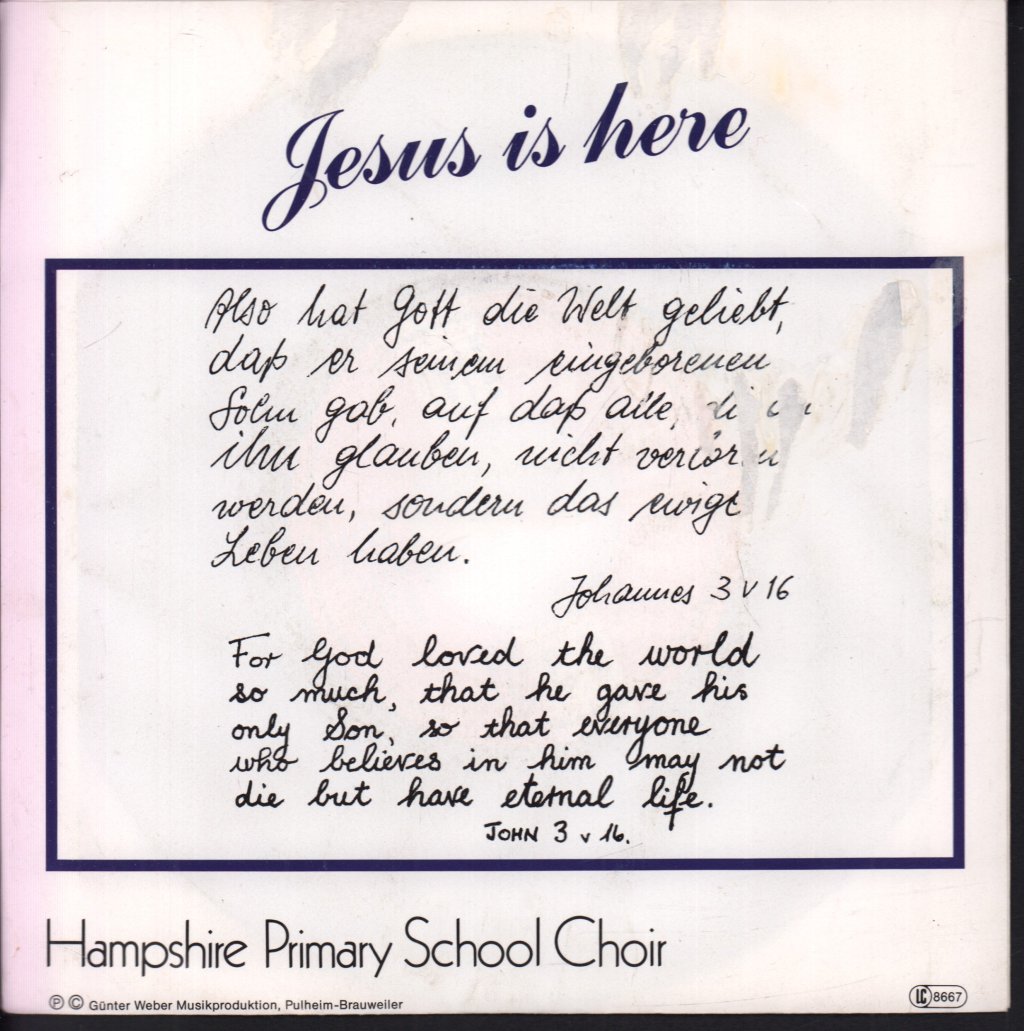 Jesus is here
Also hat Gott die Welt geliebt,
daß er seinem eingeborenen
Sohn gab, auf daß alle,
ihn glauben, nicht
werden, sondern das ewige
Leben haben.
Johannes 3 v 16
For God loved the world
so much, that he gave his
only Son, so that everyone
who believes in him may not
die but have eternal life.
JOHN 3 v 16.
Hampshire Primary School Choir
Ⓟ © Günter Weber Musikproduktion, Pulheim-Brauweiler
LC 8667